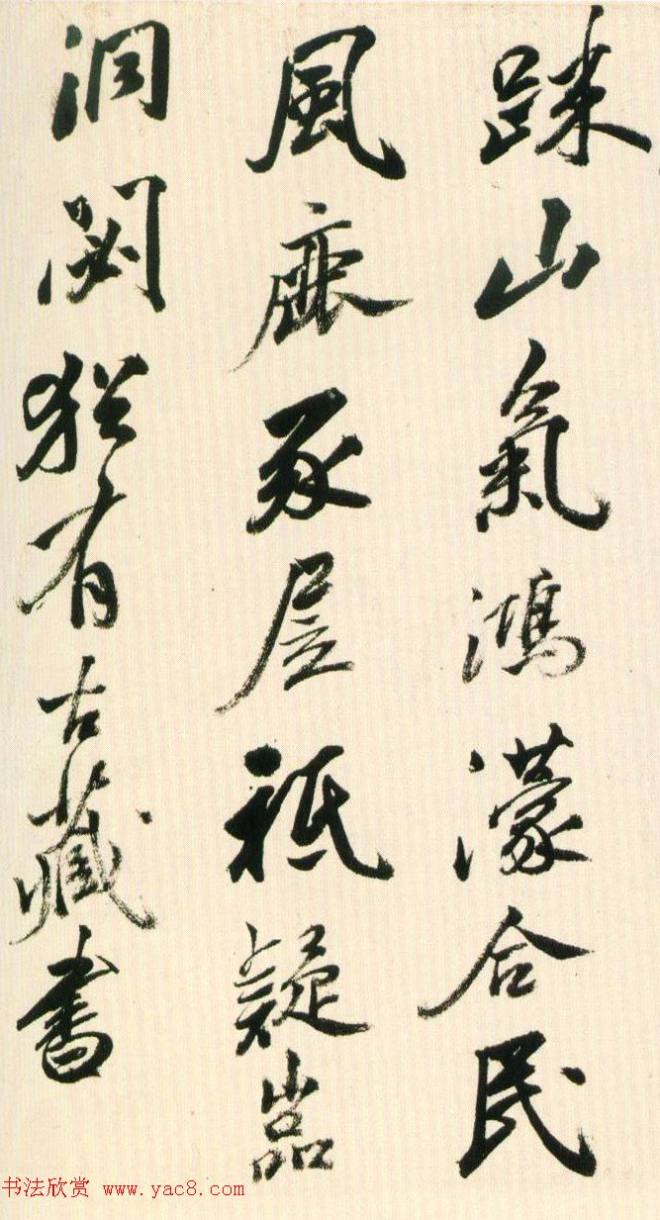 踈山氣鴻濛合民
風鹿豕居祗疑嵒
洞閟猶有古藏書
书法欣赏 www.yac8.com